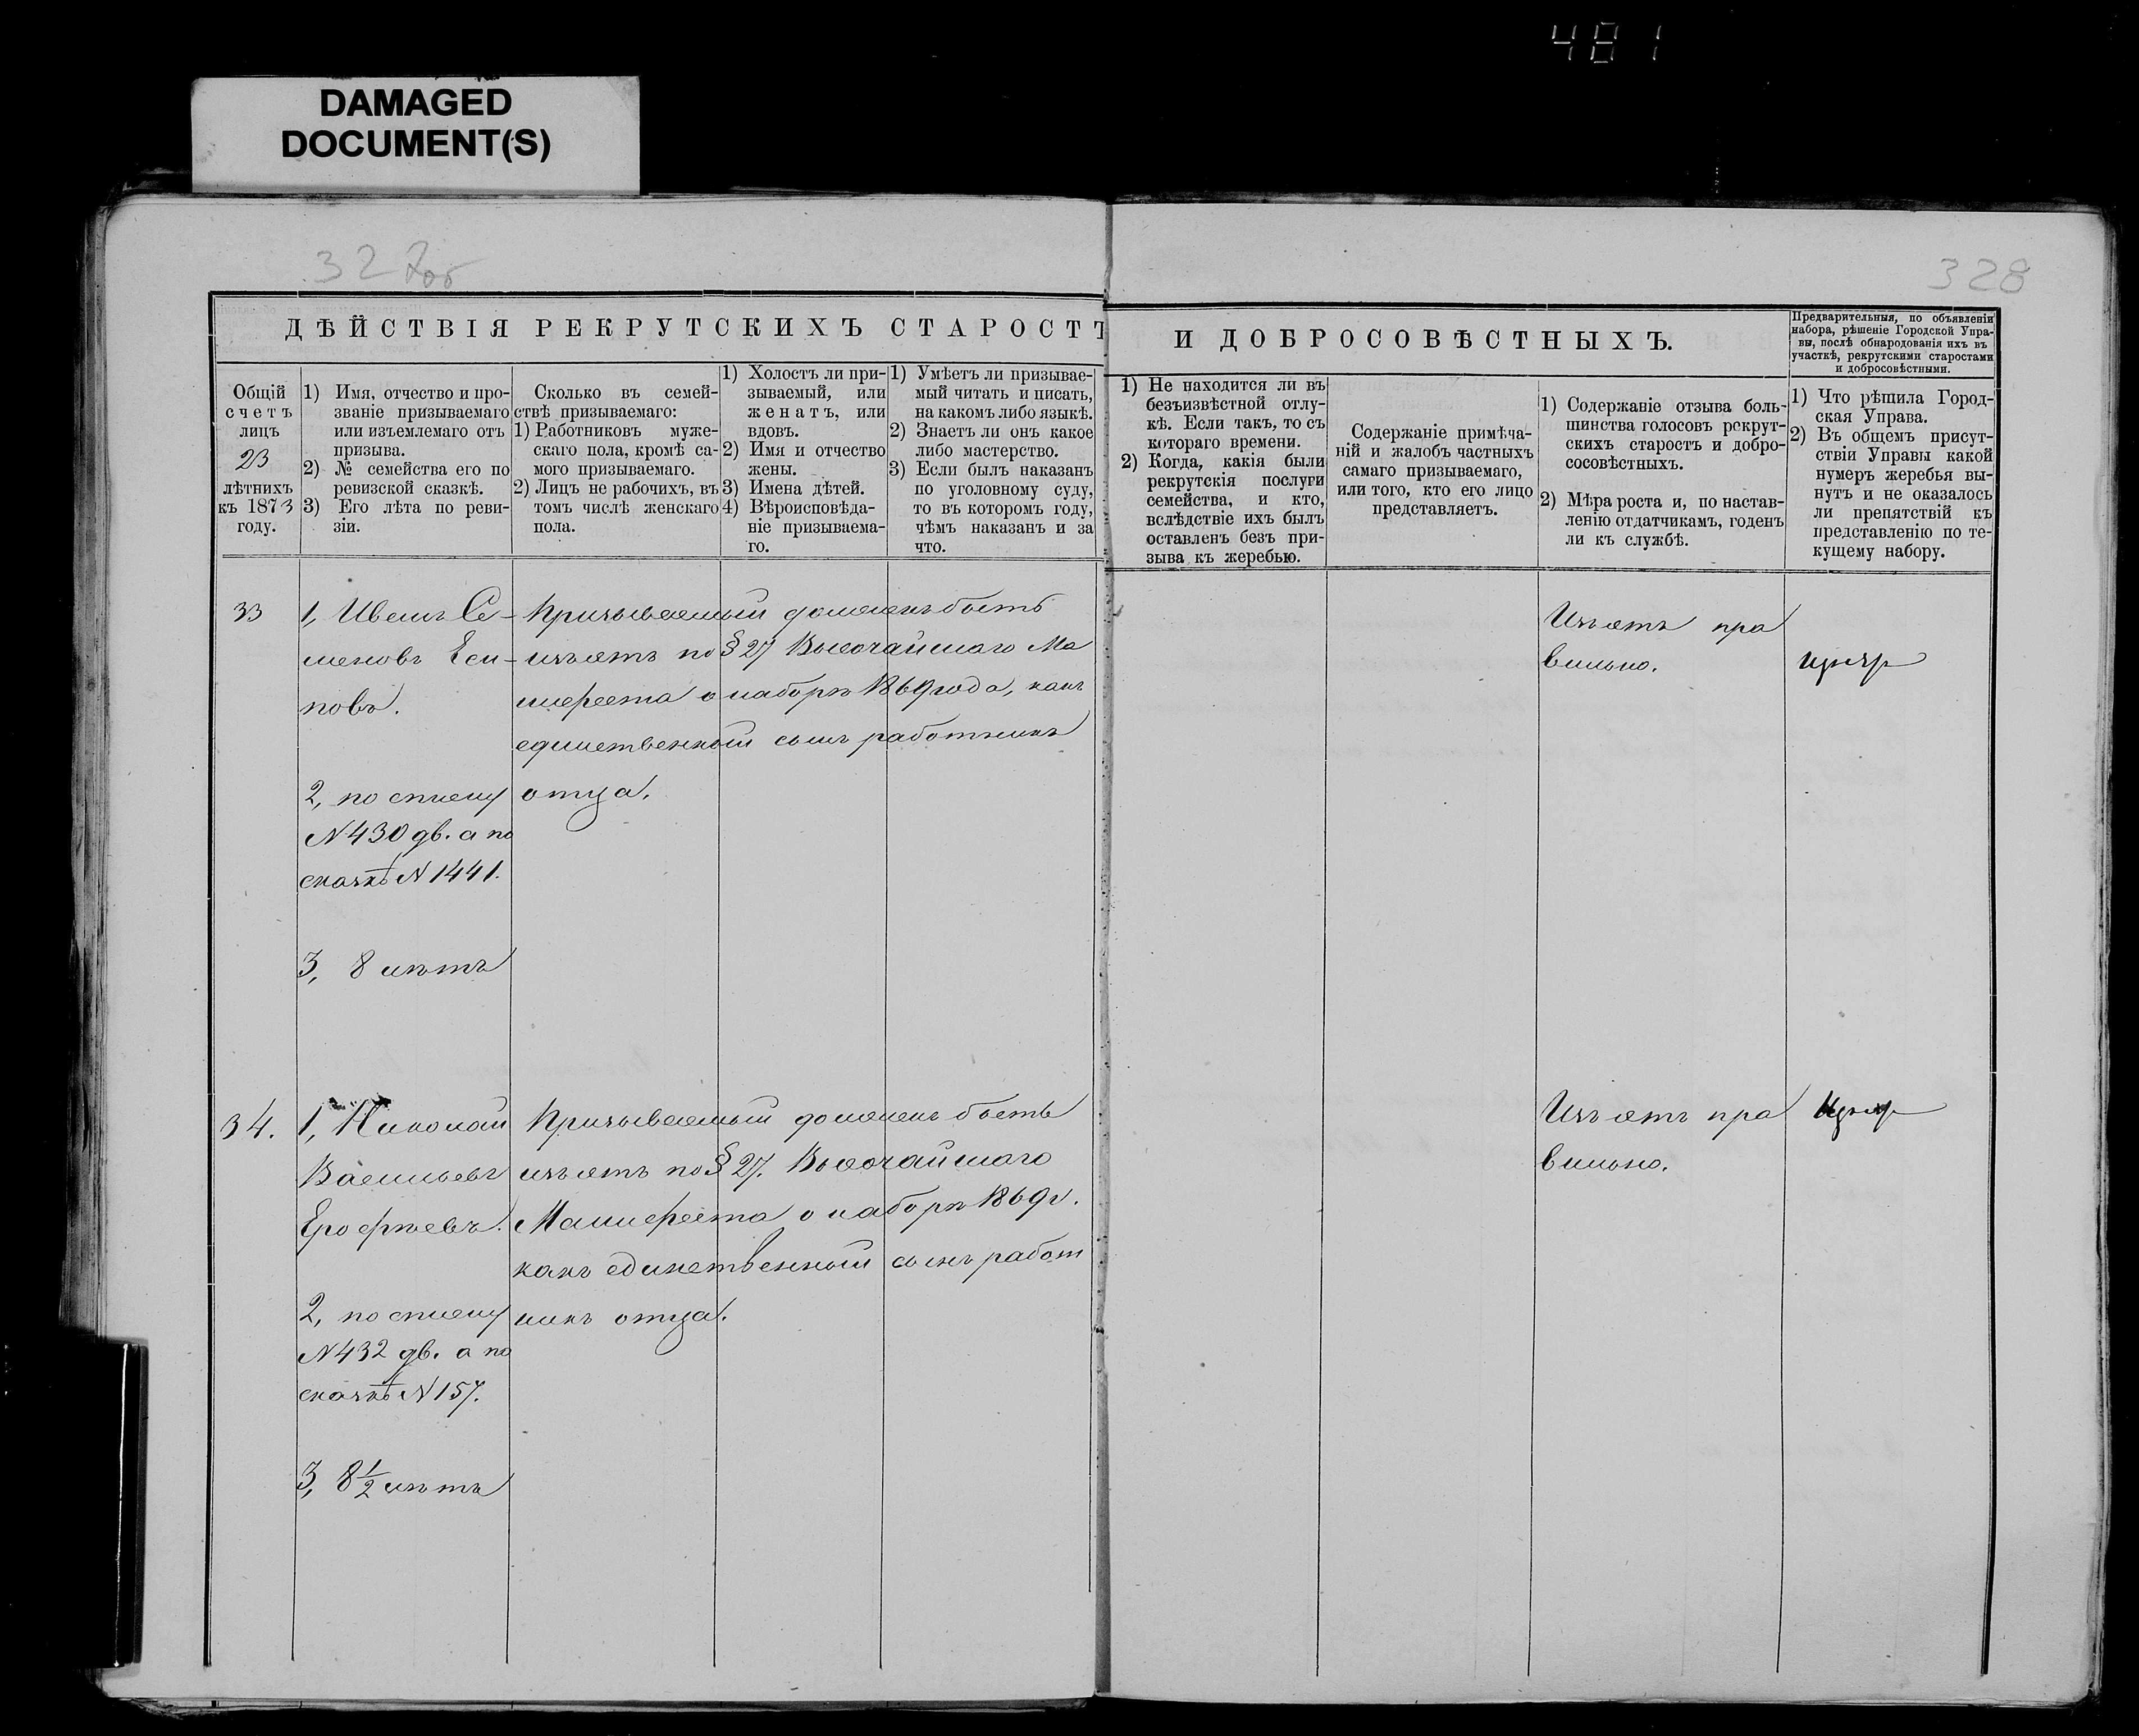 481
DAMAGED
DOCUMENT(S)
327об
328
ДѢЙСТВІЯ РЕКРУТСКИХЪ СТАРОСТЪ
И ДОБРОСОВѢСТНЫХЪ.
Предварительныя, по объявленіи
набора, рѣшеніе Городской Упра-
вы, послѣ обнародованія ихъ въ
участкѣ, рекрутскими старостами
и добросовѣстными.
Общій
счетъ
лицъ
23
лѣтнихъ
къ 1873
году.
1) Имя, отчество и про-
званіе призываемаго
или изъемлемаго отъ
призыва.
2) № семейства его по
ревизской сказкѣ.
3) Его лѣта по реви-
зіи.
Сколько въ семей-
ствѣ призываемаго:
1) Работниковъ муже-
скаго пола, кромѣ са-
мого призываемаго.
2) Лицъ не рабочихъ, въ
томъ числѣ женскаго
пола.
1) Холостъ ли при-
зываемый, или
женатъ, или
вдовъ.
2) Имя и отчество
жены.
3) Имена дѣтей.
4) Вѣроисповѣда-
ніе призываема-
го.
1) Умѣетъ ли призывае-
мый читать и писать,
на какомъ либо языкѣ.
2) Знаетъ ли онъ какое
либо мастерство.
3) Если былъ наказанъ
по уголовному суду,
то въ которомъ году,
чѣмъ наказанъ и за
что.
1) Не находится ли въ
безъизвѣстной отлу-
кѣ. Если такъ, то съ
котораго времени.
2) Когда, какія были
рекрутскія послуги
семейства, и кто,
вслѣдствіе ихъ былъ
оставленъ безъ при-
зыва къ жеребью.
Содержаніе примѣча-
ній и жалобъ частныхъ
самаго призываемаго,
или того, кто его лицо
представляетъ.
1) Содержаніе отзыва боль-
шинства голосовъ рекрут-
скихъ старостъ и добро-
совѣстныхъ.
2) Мѣра роста и, по настав-
ленію отдатчикамъ, годенъ
ли къ службѣ.
1) Что рѣшила Город-
ская Управа.
2) Въ общемъ присут-
ствіи Управы какой
нумеръ жеребья вы-
нутъ и не оказалось
ли препятствій къ
представленію по те-
кущему набору.
33
1, Иванъ Се-
меновъ Еси-
повъ.
2, по списку
N 430 дв. а по
сказкѣ N 1441.
3, 8 лѣтъ
Призываемый долженъ быть
изъятъ по § 27 Высочайшаго Ма
нифеста о наборѣ 1869 года, какъ
единственный сынъ работникъ
отца.
Изъятъ пра
вильно.
34.
1, Николай
Васильевъ
Ерофѣевъ.
2, по списку
N 432 дв. а по
сказкѣ N 157.
3, 8 1/2 лѣтъ
Призываемый долженъ быть
изъятъ по § 27. Высочайшаго
Манифеста о наборѣ 1869 г.
какъ единственный сынъ работ
никъ отца.
Изъятъ пра
вильно.